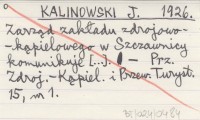 KALINOWSKI J. 1926.
Zarząd zakładu zdrojowo-
-kąpielowego w Szczawnicy
komunikuje [...]. — Prz.
Zdroj.-Kąpiel. i Przew. Turyst.
15, nr 1.